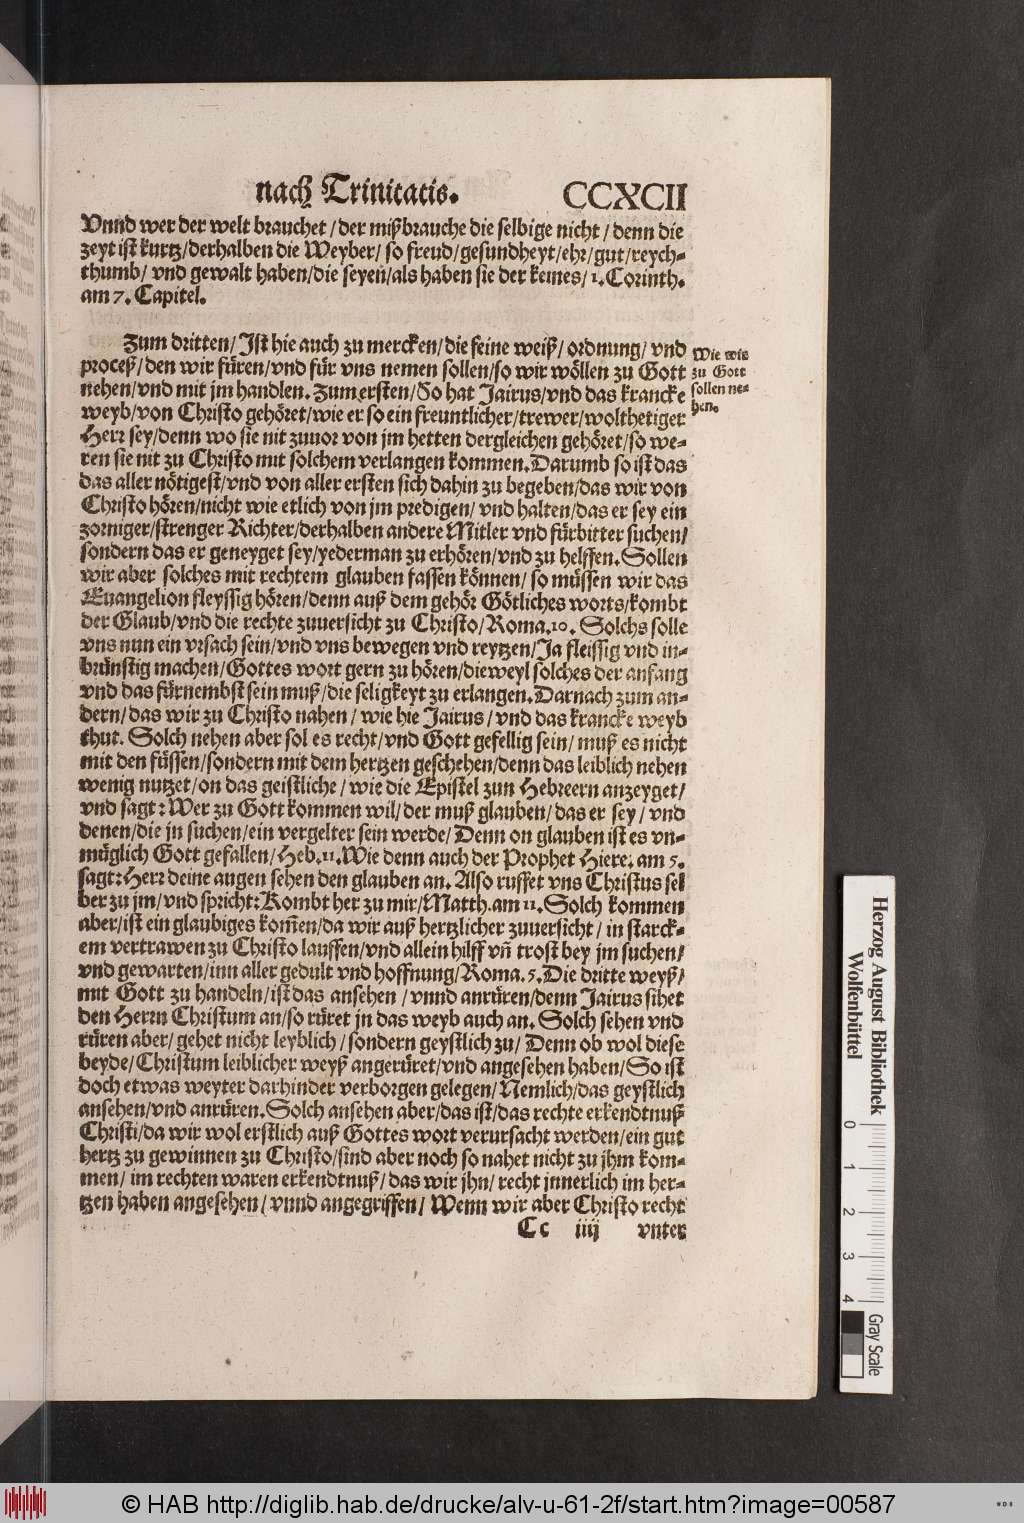 nach Trinitatis. CCXCII
Vnnd wer der welt brauchet / der mißbrauche die selbige nicht / denn die
zeyt ist kurtz/derhalben die Weyber/ so freud/gesundheyt/ehr/gut/reych-
thumb/ vnd gewalt haben/die seyen̄/als haben sie der keines/ 1. Corinth.
am 7. Capitel.
Zum dritten/ Ist hie auch zu mercken/die feine weiß/ ordnung/ vnd
proceß/den wir füren/vnd für vns nemen sollen/so wir wöllen zu Gott
nehen/vnd mit jm handlen. Zum ersten/So hat Jairus/vnd das krancke
weyb/von Christo gehöret/wie er so ein freuntlicher/trewer/wolthetiger
Herr sey/denn wo sie nit zuuor von jm hetten dergleichen gehöret/so we-
ren sie nit zu Christo mit solchem verlangen kommen. Darumb so ist das
das aller nötigest/vnd von aller ersten sich dahin zu begeben/das wir von
Christo hören/nicht wie etlich von jm predigen/ vnd halten/das er sey ein
zorniger/strenger Richter/derhalben andere Mitler vnd fürbitter suchen/
sondern das er geneyget sey/yederman zu erhören/vnd zu helffen. Sollen
wir aber solches mit rechtem glauben fassen können/ so müssen wir das
Euangelion fleyssig hören/denn auß dem gehör Götliches worts/kombt
der Glaub/vnd die rechte zuuersicht zu Christo/Roma.10. Solchs solle
vns nun ein vrsach sein/vnd vns bewegen vnd reytzen/Ja fleissig vnd in-
brünstig machen/Gottes wort gern zu hören/dieweyl solches der anfang
vnd das fürnembst sein muß/die seligkeyt zu erlangen. Darnach zum an-
dern/das wir zu Christo nahen / wie hie Jairus / vnd das krancke weyb
thut. Solch nehen aber sol es recht/vnd Gott gefellig sein/ muß es nicht
mit den füssen/sondern mit dem hertzen geschehen/denn das leiblich nehen
wenig nutzet/on das geistliche / wie die Epistel zun Hebreern anzeyget/
vnd sagt: Wer zu Gott kommen wil/der muß glauben/das er sey / vnd
denen/die jn suchen/ein vergelter sein werde/ Denn on glauben ist es vn-
müglich Gott gefallen/Heb.11.Wie denn auch der Prophet Hiere. am 5.
sagt: Herr deine augen sehen den glauben an. Also ruffet vns Christus sel
ber zu jm/vnd spricht: Kombt her zu mir/Matth.am 11. Solch kommen
aber/ist ein glaubiges kom̄en/da wir auß hertzlicher zuuersicht / in starck-
em vertrawen zu Christo lauffen/vnd allein hilff vn̄ trost bey jm suchen/
vnd gewarten/inn aller gedult vnd hoffnung/Roma. 5. Die dritte weyß/
mit Gott zu handeln/ist das ansehen / vnnd anrüren/denn Jairus sihet
den Herrn Christum an/so rüret jn das weyb auch an. Solch sehen vnd
rüren aber/gehet nicht leyblich/sondern geystlich zu/ Denn ob wol diese
beyde/Christum leiblicher weyß angerüret/vnd angesehen haben/So ist
doch etwas weyter darhinder verborgen gelegen/Nemlich/das geystlich
ansehen/vnd anrüren. Solch ansehen aber/das ist/das rechte erkendtnuß
Christi/da wir wol erstlich auß Gottes wort verursacht werden/ein gut
hertz zu gewinnen zu Christo/sind aber noch so nahet nicht zu jhm kom-
men/ im rechten waren erkendtnuß/das wir jhn/ recht jnnerlich im her-
tzen haben angesehen/ vnnd angegriffen/ Wenn wir aber Christo recht
Cc iiij vnter
Wie wir
zu Gott
sollen ne-
hen.
Herzog August Bibliothek
Wolfenbüttel
0 1 2 3 4
Gray Scale
© HAB http://diglib.hab.de/drucke/alv-u-61-2f/start.htm?image=00587
WDB